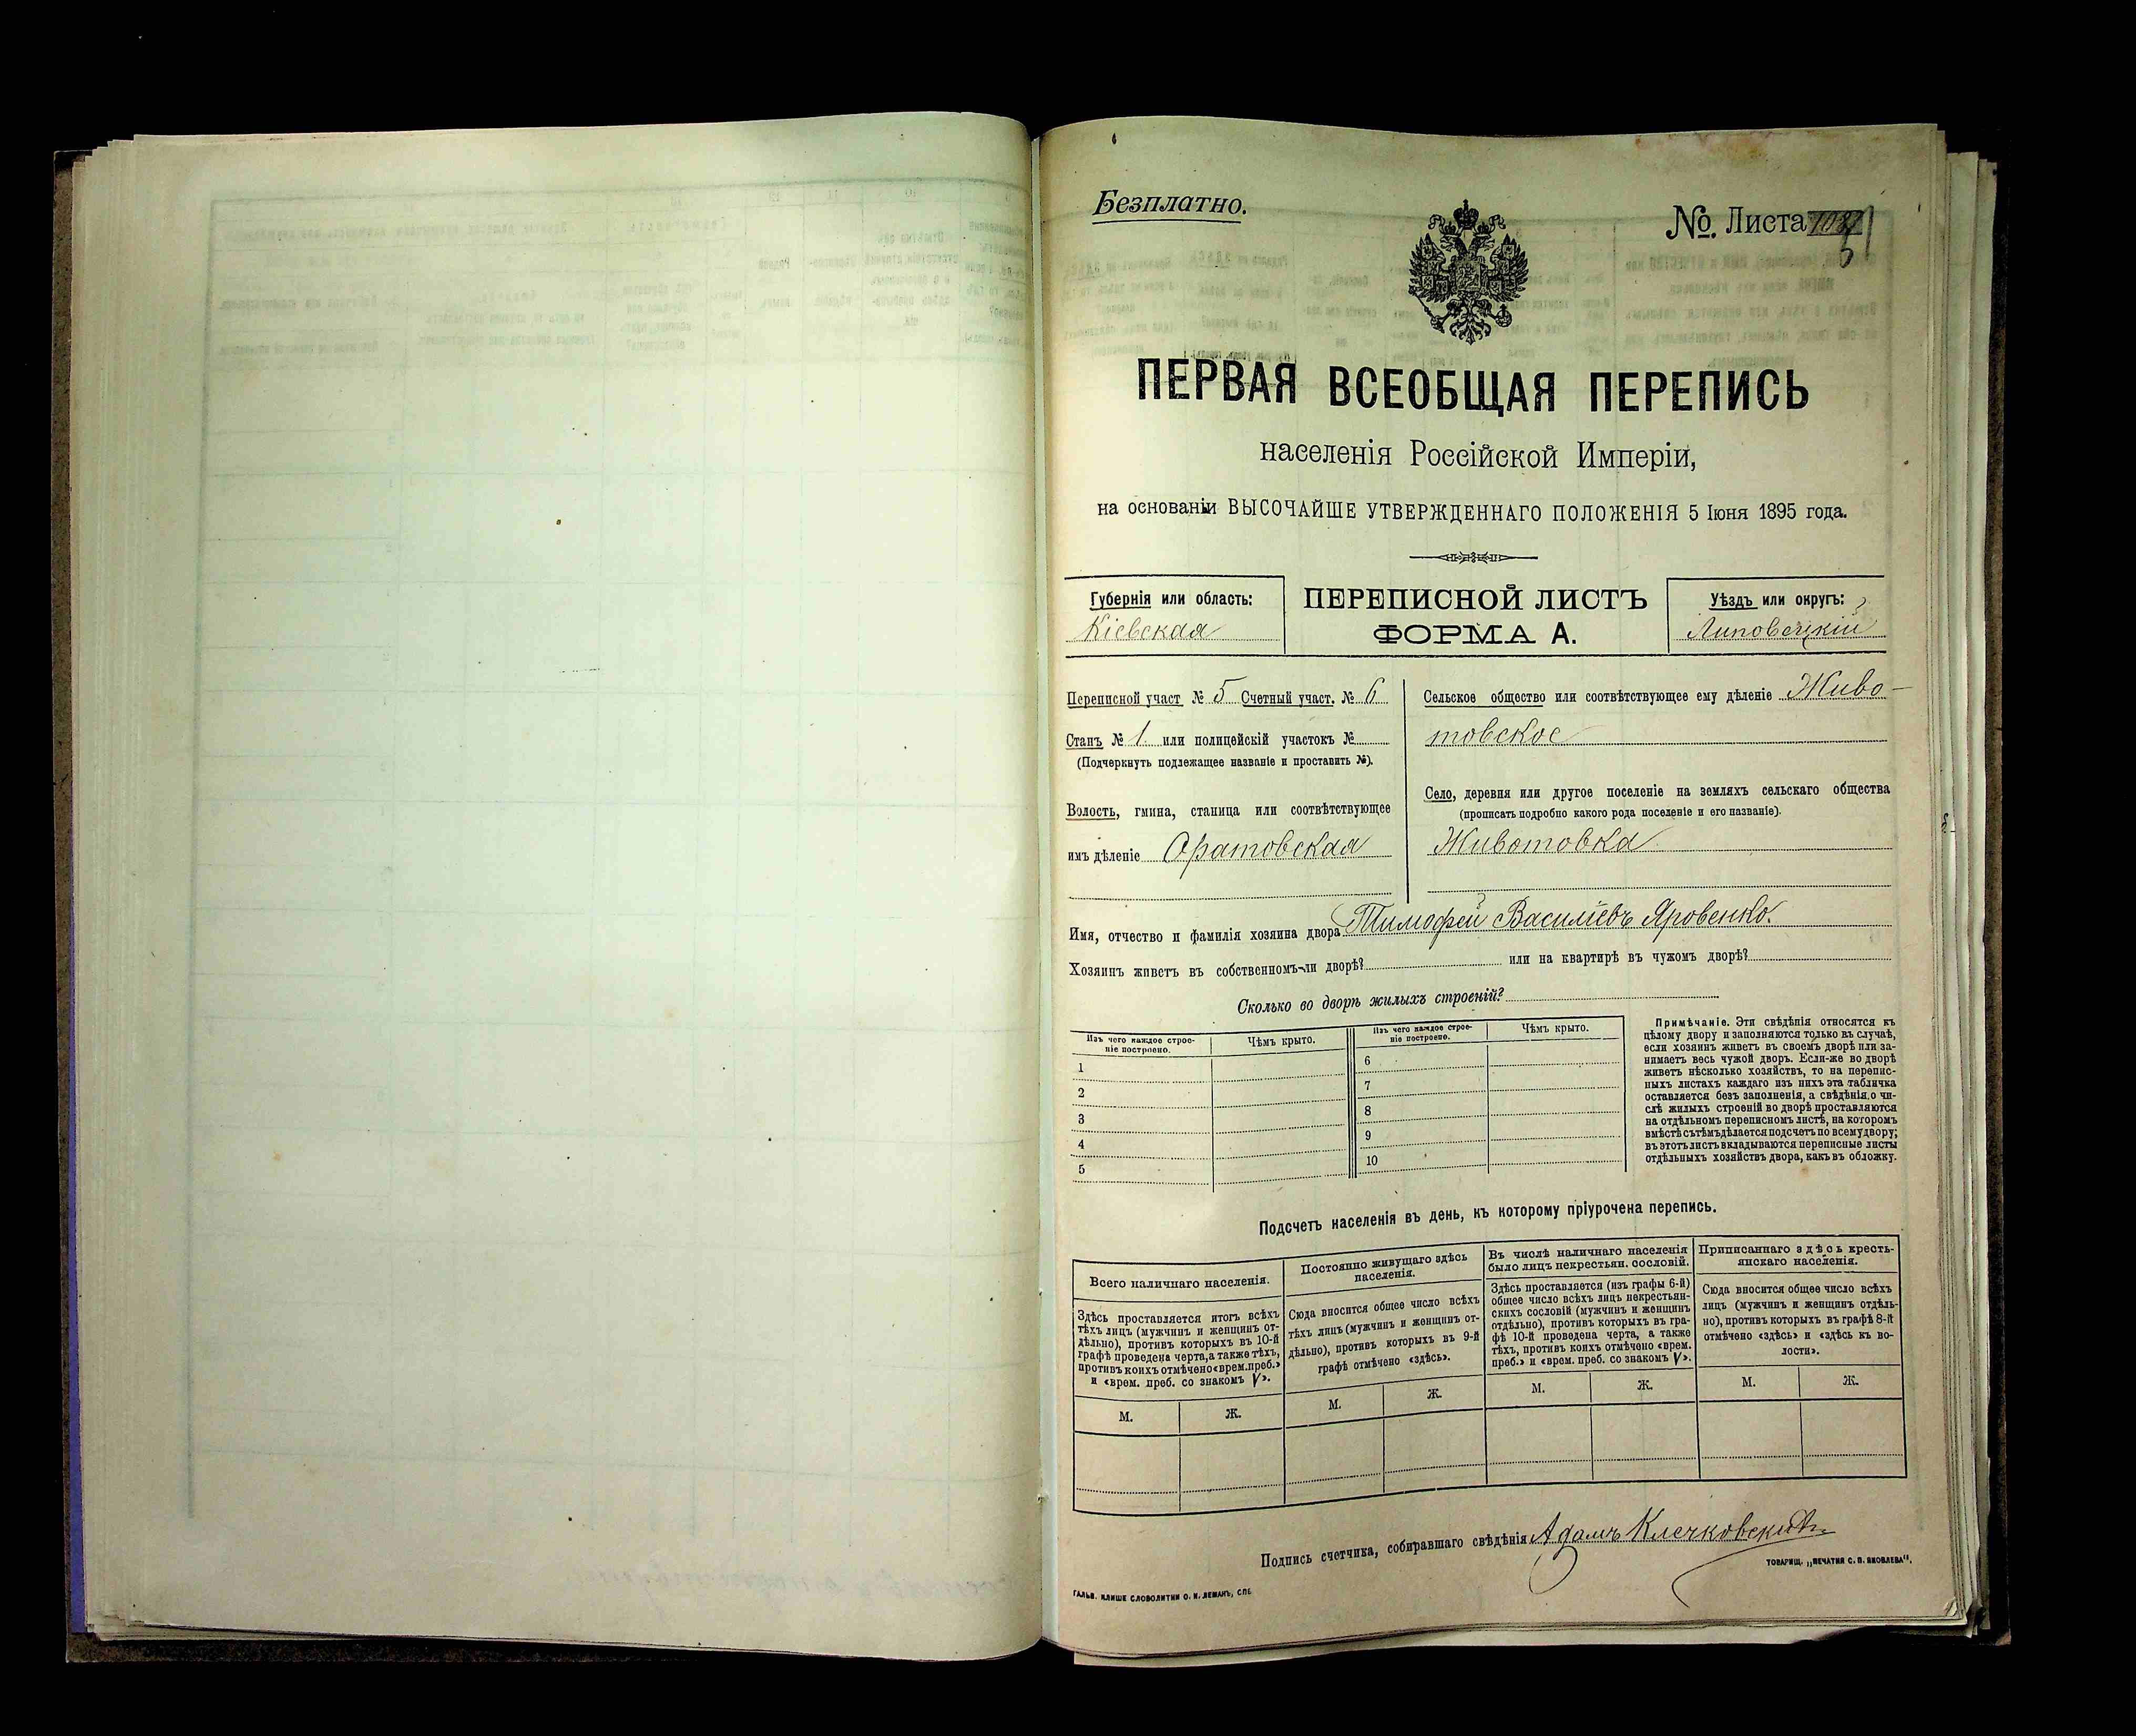 Безплатно.
№. Листа
ПЕРВАЯ ВСЕОБЩАЯ ПЕРЕПИСЬ
населенія Россійской Имперіи,
на основаніи ВЫСОЧАЙШЕ УТВЕРЖДЕННАГО ПОЛОЖЕНІЯ 5 Іюня 1895 года.
Губернія или область:
Кіевская
ПЕРЕПИСНОЙ ЛИСТЪ
ФОРМА А.
Уѣздъ или округъ:
Липовецкій
Переписной участ № 5 Счетный участ. № 6
Станъ № 1 или полицейскій участокъ №
(Подчеркнуть подлежащее названіе и проставить №).
Волость, гмина, станица или соотвѣтствующее
имъ дѣленіе Оратовская
Сельское общество или соотвѣтствующее ему дѣленіе Живо-
товское
Село, деревня или другое поселеніе на земляхъ сельскаго общества
(прописать подробно какого рода поселеніе и его названіе).
Животовка
Имя, отчество и фамилія хозяина двора Тимофей Василіевъ Яровенко.
Хозяинъ живетъ въ собственномъ-ли дворѣ? или на квартирѣ въ чужомъ дворѣ?
Сколько во дворѣ жилыхъ строеній?
Изъ чего каждое строе-
ніе построено.
Чѣмъ крыто.
1
2
3
4
5
Изъ чего каждое строе-
ніе построено.
Чѣмъ крыто.
6
7
8
9
10
Примѣчаніе. Эти свѣдѣнія относятся къ
цѣлому двору и заполняются только въ случаѣ,
если хозяинъ живетъ въ своемъ дворѣ или за-
нимаетъ весь чужой дворъ. Если-же во дворѣ
живетъ нѣсколько хозяйствъ, то на перепис-
ныхъ листахъ каждаго изъ нихъ эта табличка
оставляется безъ заполненія, а свѣдѣнія о чи-
слѣ жилыхъ строеній во дворѣ проставляются
на отдѣльномъ переписномъ листѣ, на которомъ
вмѣстѣ съ тѣмъ дѣлается подсчетъ по всему двору;
въ этотъ листъ вкладываются переписные листы
отдѣльныхъ хозяйствъ двора, какъ въ обложку.
Подсчетъ населенія въ день, къ которому пріурочена перепись.
Всего наличнаго населенія.
Здѣсь проставляется итогъ всѣхъ
тѣхъ лицъ (мужчинъ и женщинъ от-
дѣльно), противъ которыхъ въ 10-й
графѣ проведена черта, а также тѣхъ,
противъ коихъ отмѣчено «врем. преб.»
и «врем. преб. со знакомъ V».
М. Ж.
Постоянно живущаго здѣсь
населенія.
Сюда вносится общее число всѣхъ
тѣхъ лицъ (мужчинъ и женщинъ от-
дѣльно), противъ которыхъ въ 9-й
графѣ отмѣчено «здѣсь».
М. Ж.
Въ числѣ наличнаго населенія
было лицъ некрестьян. сословій.
Здѣсь проставляется (изъ графы 6-й)
общее число всѣхъ лицъ некрестьян-
скихъ сословій (мужчинъ и женщинъ
отдѣльно), противъ которыхъ въ гра-
фѣ 10-й проведена черта, а также
тѣхъ, противъ коихъ отмѣчено «врем.
преб.» и «врем. преб. со знакомъ V».
М. Ж.
Приписаннаго здѣсь кресть-
янскаго населенія.
Сюда вносится общее число всѣхъ
лицъ (мужчинъ и женщинъ отдѣль-
но), противъ которыхъ въ графѣ 8-й
отмѣчено «здѣсь» и «здѣсь къ во-
лости».
М. Ж.
Подпись счетчика, собиравшаго свѣдѣнія Адамъ Клечковскій
ТОВАРИЩ. „ПЕЧАТНЯ С. П. ЯКОВЛЕВА“.
ГАЛЬВ. КЛИШЕ СЛОВОЛИТНИ О. И. ЛЕМАНЪ, СПБ.